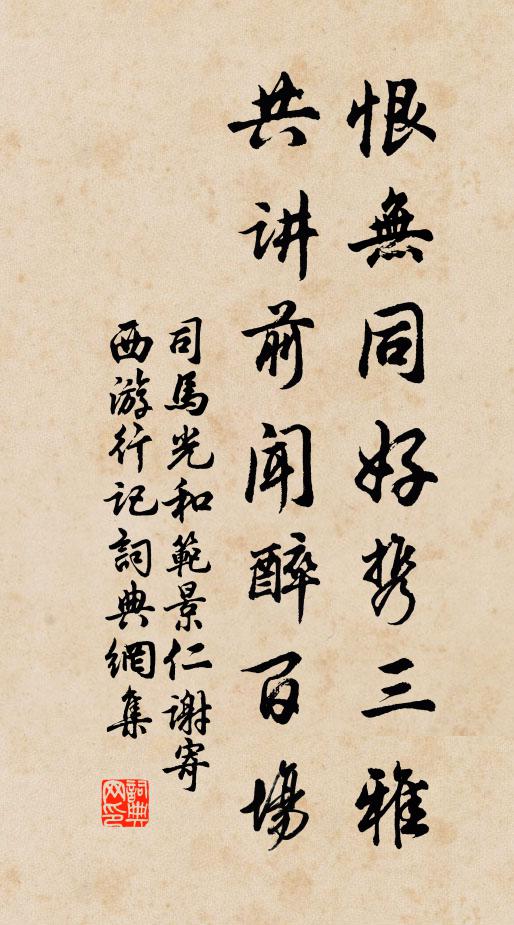 恨無同好携三雅
共讲前闻醉百場
司馬光和範景仁謝寄
西游行記詞典網集
詞典網印